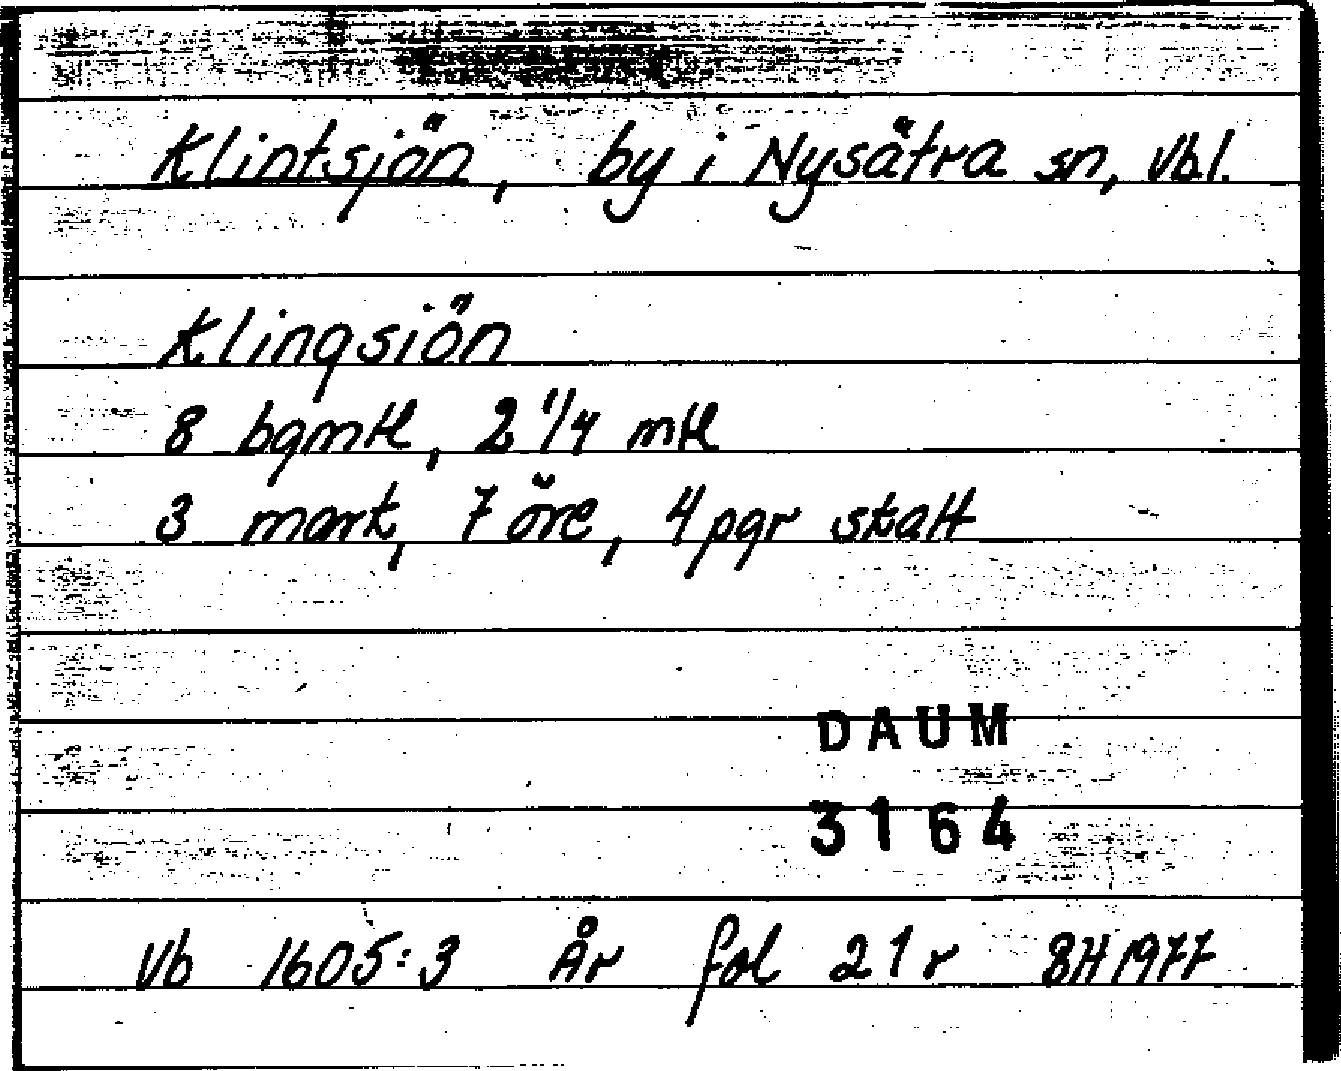 Klintsjön, by i Nysätra sn, Vb.l.
Klingsiön
8 bgmtl, 2 1/4 mtl
3 mark, 7 öre, 4 pgr skatt
DAUM
3164
Vb 1605:3 År fol 21r BH 1977